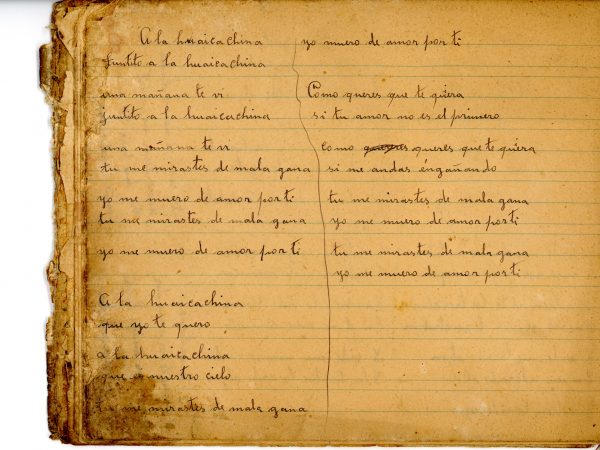 A la huaicachina
Juntito a la huaicachina
una mañana te vi
juntito a la huaicachina
una mañana te vi
tu me mirastes de mala gana
yo me muero de amor por ti
tu me mirastes de mala gana
yo me muero de amor por ti
A la huaicachina
que yo te quero
a la huaicachina
que es nuestro cielo
tu me mirastes de mala gana
yo muero de amor por ti
Como queres que te qüera
si tu amor no es el primero
como queres queres que te quera
si me andas éngañando
tu me mirastes de mala gana
yo me muero de amor por ti
tu me mirastes de mala gana
yo me muero de amor por ti